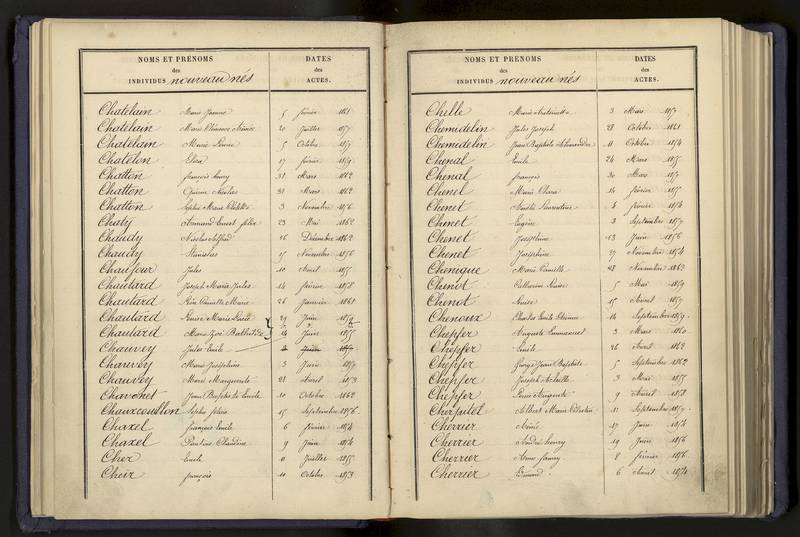 NOMS ET PRÉNOMS
des
INDIVIDUS nouveau nés
DATES
des
ACTES.
Chatelain Marie Jeanne 5 février 1861
Chatelain Marie Clémence 20 Juillet 1857
Chatelain Marie Louise 5 Octobre 1857
Chatelon 17 février 1859
Chatton françois 31 Mars 1862
Chatton Nicolas 31 Mars 1862
Chatton Sophie Marie 3 Novembre 1856
Chaty Armand Ernest 23 Mai 1862
Chaudy Nicolas 16 Décembre 1862
Chaudy Stanislas 17 Novembre 1856
Chaufour Jules 10 Avril 1855
Chautard Joseph Marie Jules 14 février 1858
Chautard Camille Marie 26 Janvier 1861
Chautard Louise Marie Lucie 29 Juin 1859
Chautard Marie 24 Juin 1855
Chauvey Jules Emile
Chauvey Marie Joséphine 3 Juin 1857
Chauvey Marie Marguerite 21 Avril 1853
Chavonet Jean Baptiste Emile 10 Octobre 1862
Chauxcouillon Sophie 15 Septembre 1856
Chaxel françois Emile 6 février 1854
Chaxel Pauline Claudine 9 Juin 1854
Cher Emile 11 Juillet 1855
Cheir françois 10 Octobre 1853
NOMS ET PRÉNOMS
des
INDIVIDUS nouveau nés
DATES
des
ACTES.
Chelle Marie Antoinette 3 Mars 1857
Chemidelin Jules Joseph 28 Octobre 1861
Chemidelin Jean Baptiste Alexandre 11 Octobre 1854
Chenal Emile 24 Mars 1855
Chenal françois 30 Mars 1857
Chenel Marie 14 février 1855
Chenet 6 février 1854
Chenet Eugène 3 Septembre 1857
Chenet Joséphine 23 Juin 1856
Chenet Joséphine 27 Novembre 1854
Chenique Marie Camille 28 Novembre 1862
Chenot Catherine Louise 5 Mai 1859
Chenot Louise 15 Avril 1857
Chenoux Charles Emile Etienne 14 Septembre 1859
Chepfer Auguste Emmanuel 3 Mars 1860
Chepfer Emile 26 Avril 1862
Chepfer George Jean Baptiste 5 Septembre 1862
Chepfer Joseph Achille 3 Mai 1855
Chepfer Auguste 9 Avril 1858
Cherpulet Albert Marie 11 Septembre 1857
Cherrier Aimée 17 Juin 1854
Cherrier André henry 19 Juin 1856
Cherrier 8 février 1856
Cherrier Edmond 6 Avril 1854